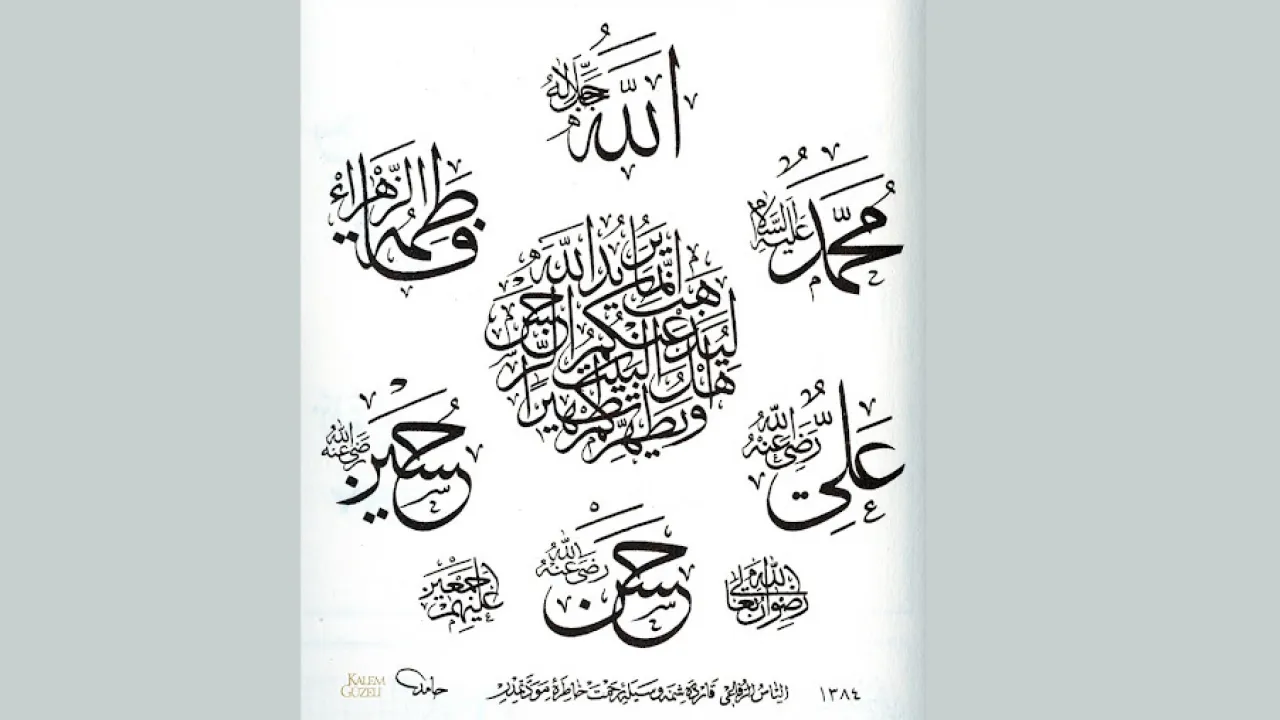 الله جل جلاله
محمد عليه السلام
فاطمة الزهراء
إنما يريد الله
ليذهب عنكم الرجس
أهل البيت
ويطهركم تطهيرا
علي رضي الله عنه
حسين رضي الله عنه
حسن رضي الله عنه
رضوان الله تعالى
عليهم أجمعين
١٣٨٤
حامد
KALEM
GÜZELİ